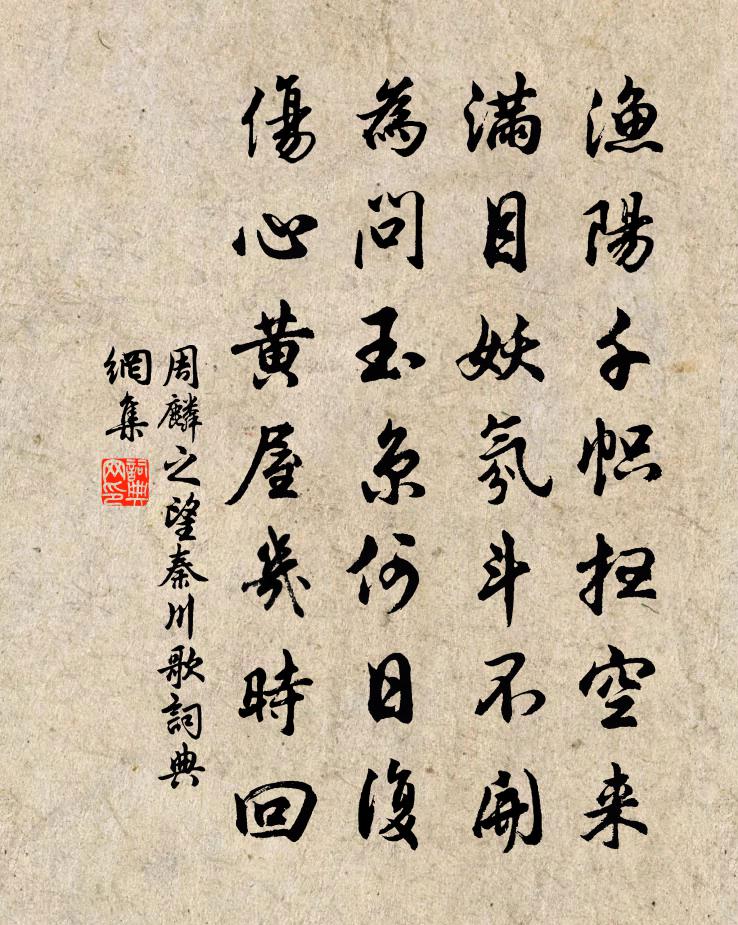 漁陽千帜抂空来
滿目妖氛斗不開
為問玉京何日復
傷心黄屋幾時回
周麟之望秦川歌詞典
網集
詞典
网印